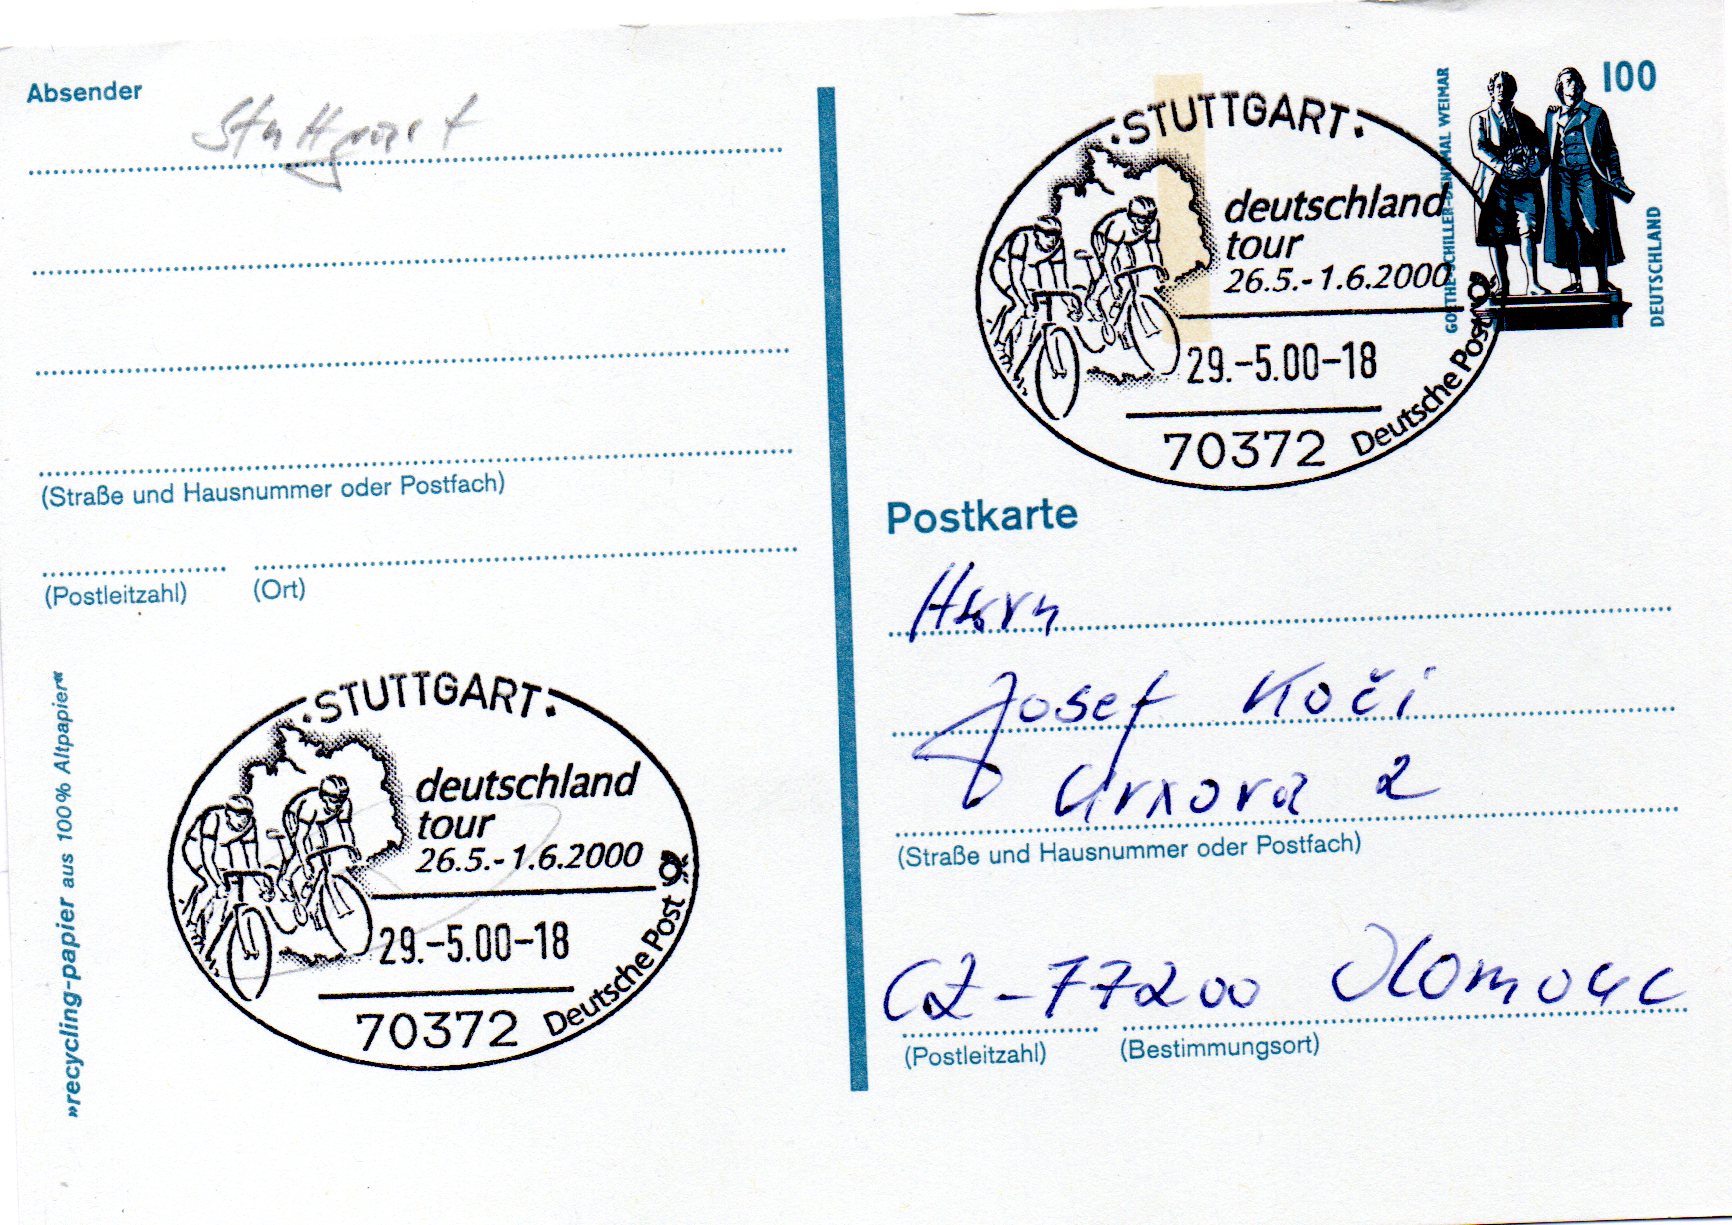 Absender
Stuttgart
(Straße und Hausnummer oder Postfach)
(Postleitzahl) (Ort)
»recycling-papier aus 100% Altpapier«
·STUTTGART·
deutschland
tour
26.5.-1.6.2000
29.-5.00-18
70372
Deutsche Post
100
GOETHE-SCHILLER-DENKMAL WEIMAR
DEUTSCHLAND
·STUTTGART·
deutschland
tour
26.5.-1.6.2000
29.-5.00-18
70372
Deutsche Post
Postkarte
Herrn
Josef Kočí
2
(Straße und Hausnummer oder Postfach)
CZ-77200 Olomouc
(Postleitzahl) (Bestimmungsort)